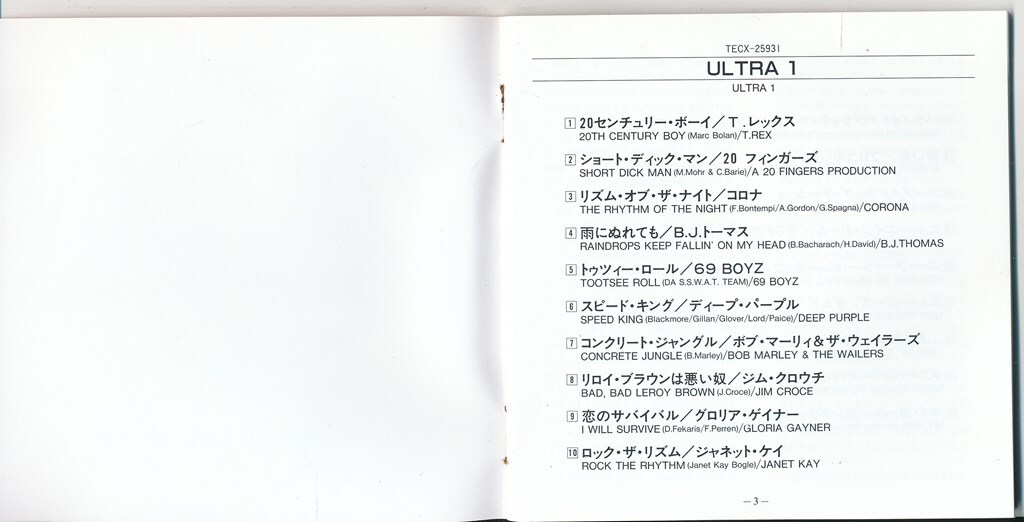 TECX-25931
ULTRA 1
ULTRA 1
1 20センチュリー・ボーイ／T．レックス
20TH CENTURY BOY (Marc Bolan)/T.REX
2 ショート・ディック・マン／20 フィンガーズ
SHORT DICK MAN (M.Mohr & C.Barie)/A 20 FINGERS PRODUCTION
3 リズム・オブ・ザ・ナイト／コロナ
THE RHYTHM OF THE NIGHT (F.Bontempi/A.Gordon/G.Spagna)/CORONA
4 雨にぬれても／B.J.トーマス
RAINDROPS KEEP FALLIN' ON MY HEAD (B.Bacharach/H.David)/B.J.THOMAS
5 トゥツィー・ロール／69 BOYZ
TOOTSEE ROLL (DA S.S.W.A.T. TEAM)/69 BOYZ
6 スピード・キング／ディープ・パープル
SPEED KING (Blackmore/Gillan/Glover/Lord/Paice)/DEEP PURPLE
7 コンクリート・ジャングル／ボブ・マーリィ&ザ・ウェイラーズ
CONCRETE JUNGLE (B.Marley)/BOB MARLEY & THE WAILERS
8 リロイ・ブラウンは悪い奴／ジム・クロウチ
BAD, BAD LEROY BROWN (J.Croce)/JIM CROCE
9 恋のサバイバル／グロリア・ゲイナー
I WILL SURVIVE (D.Fekaris/F.Perren)/GLORIA GAYNER
10 ロック・ザ・リズム／ジャネット・ケイ
ROCK THE RHYTHM (Janet Kay Bogle)/JANET KAY
—3—